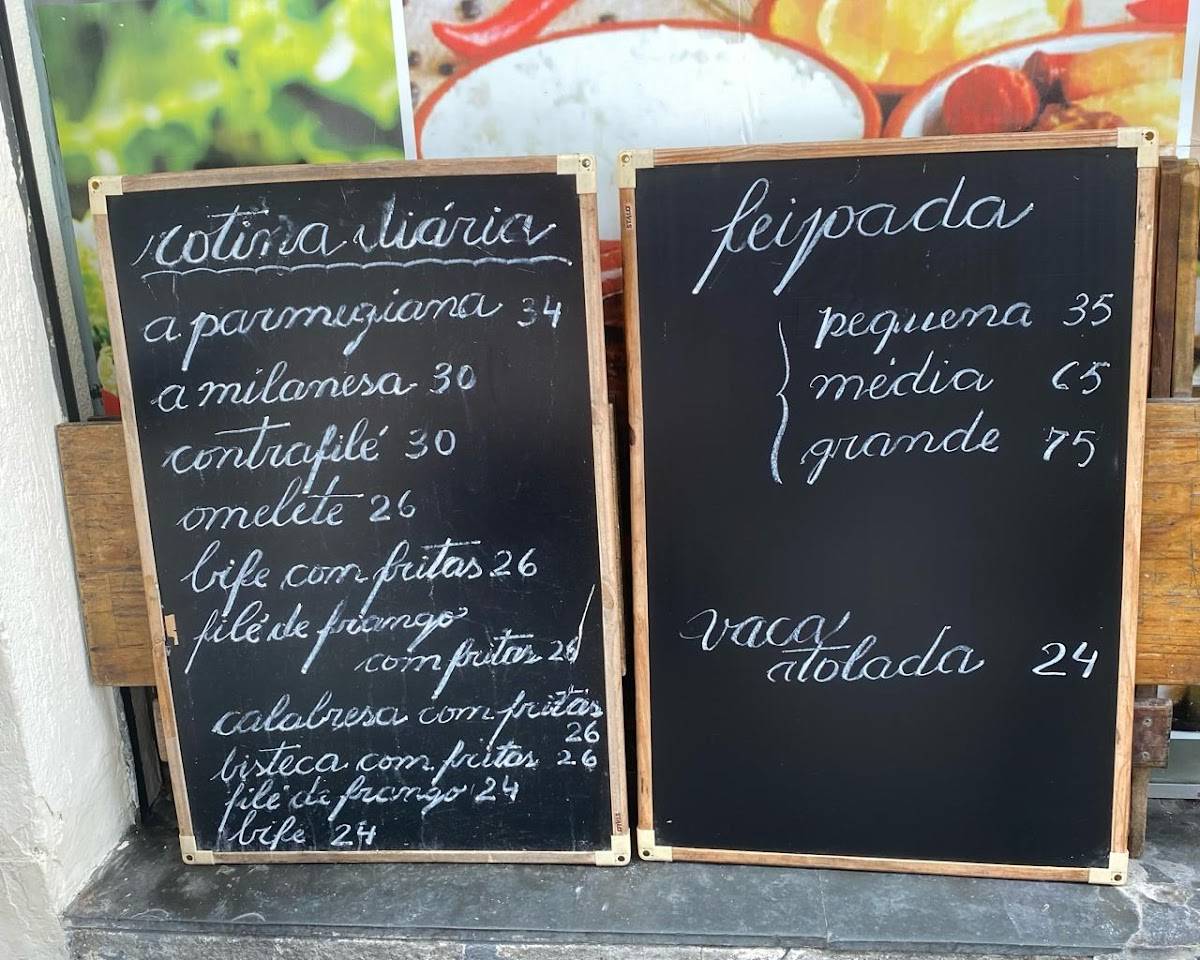 rotina diária
a parmegiana 34
a milanesa 30
contrafilé 30
omelete 26
bife com fritas 26
filé de frango
com fritas 26
calabresa com fritas
26
bisteca com fritas 26
filé de frango 24
bife 24
feijoada
pequena 35
média 65
grande 75
vaca
atolada 24